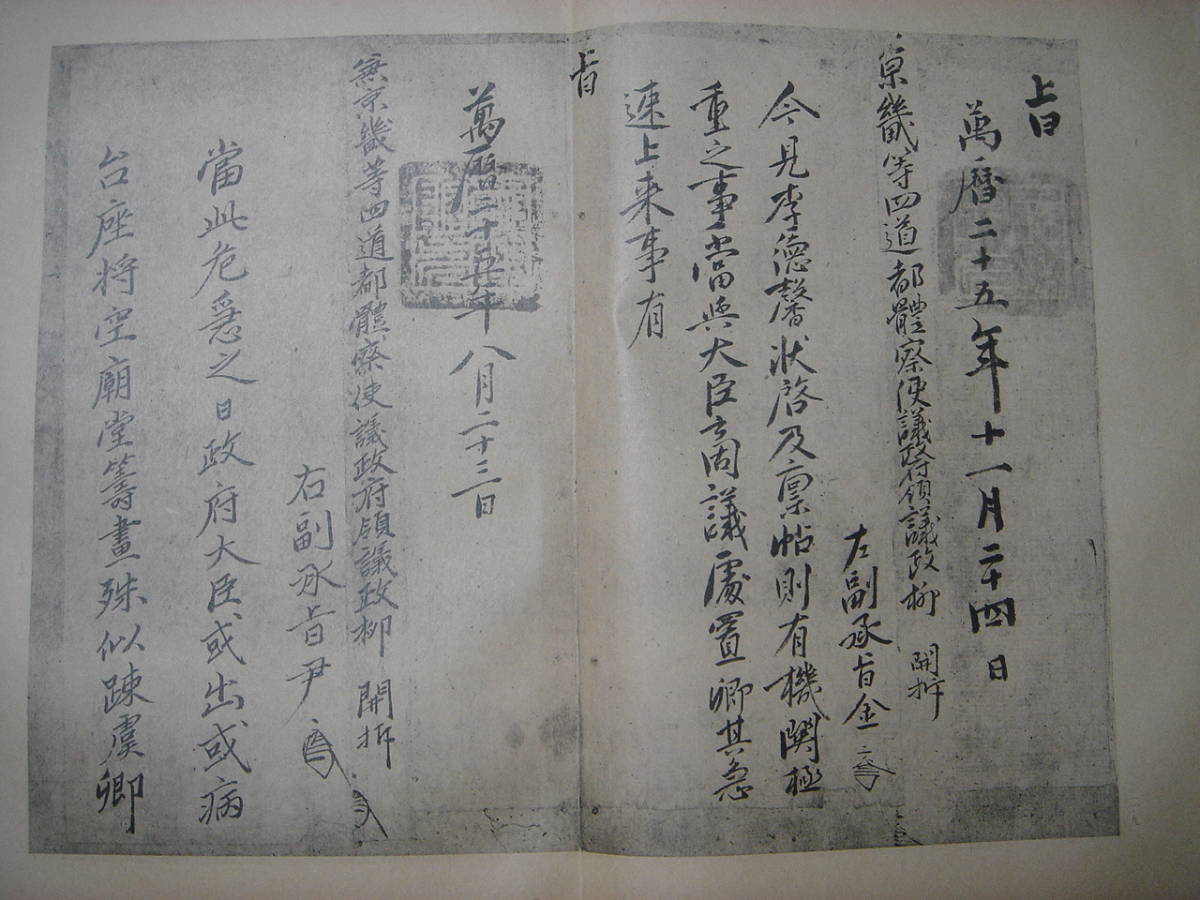 旨
萬曆二十五年十一月二十四日
京畿等四道都體察使議政府領議政柳 開拆
左副承旨金
今見李德馨狀啓及稟帖則有機關極
重之事當與大臣商議處置卿其急
速上来事有
旨
萬曆二十五年八月二十三日
兼京畿等四道都體察使議政府領議政柳 開拆
右副承旨尹
當此危急之日政府大臣或出或病
台座將空廟堂籌畫殊似踈虞卿